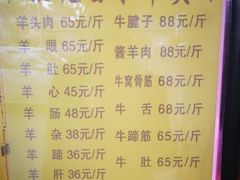 羊头肉 65元/斤 牛腱子 88元/斤
羊 眼 65元/斤 酱羊肉 88元/斤
羊 肚 65元/斤
羊 心 45元/斤 牛窝骨筋 68元/斤
羊 肠 48元/斤 牛 舌 68元/斤
羊 杂 38元/斤 牛蹄筋 65元/斤
羊 蹄 36元/斤 牛 肚 65元/斤
羊 肝 36元/斤